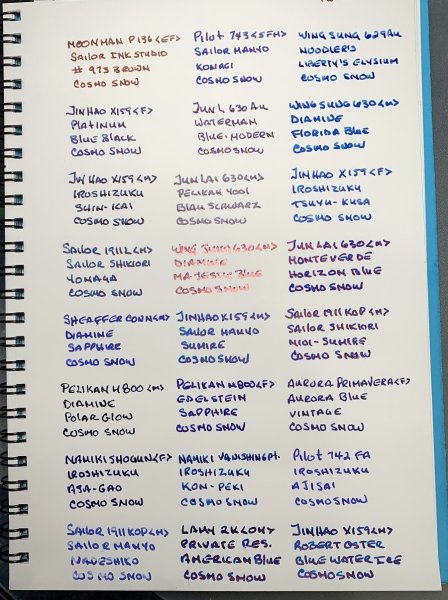 MOONMAN P136 <EF>
SAILOR INK STUDIO
# 973 BROWN
COSMO SNOW
PILOT 743 <SFM>
SAILOR MANYO
KONAGI
COSMO SNOW
WING SUNG 629 Au
NOODLER'S
LIBERTY'S ELYSIUM
COSMO SNOW
JINHAO X159 <F>
PLATINUM
BLUE BLACK
COSMO SNOW
JUN L 630 Au
WATERMAN
BLUE-MODERN
COSMO SNOW
WING SUNG 630 <M>
DIAMINE
FLORIDA BLUE
COSMO SNOW
JINHAO X159 <M>
IROSHIZUKU
SHIN-KAI
COSMO SNOW
JUN LAI 630 <M>
PELIKAN 4001
BLAU SCHWARZ
COSMO SNOW
JINHAO X159 <F>
IROSHIZUKU
TSUYU-KUSA
COSMO SNOW
SAILOR 1911L <M>
SAILOR SHIKIORI
YONAGA
COSMO SNOW
WING SUNG 630 <M>
DIAMINE
MAJESTIC BLUE
COSMO SNOW
JUN LAI 630 <M>
MONTEVERDE
HORIZON BLUE
COSMO SNOW
SHEAFFER CONN <M>
DIAMINE
SAPPHIRE
COSMO SNOW
JINHAO X159 <M>
SAILOR MANYO
SUMIRE
COSMO SNOW
SAILOR 1911 KOP <M>
SAILOR SHIKIORI
NIOI-SUMIRE
COSMO SNOW
PELIKAN M800 <M>
DIAMINE
POLAR GLOW
COSMO SNOW
PELIKAN M800 <F>
EDELSTEIN
SAPPHIRE
COSMO SNOW
AURORA PRIMAVERA <F>
AURORA BLUE
VINTAGE
COSMO SNOW
NAMIKI SHOGUN <F>
IROSHIZUKU
ASA-GAO
COSMO SNOW
NAMIKI VANISHING PT.
IROSHIZUKU
KON-PEKI
COSMO SNOW
PILOT 742 FA
IROSHIZUKU
AJISAI
COSMO SNOW
SAILOR 1911 KOP <M>
SAILOR MANYO
NADESHIKO
COSMO SNOW
LAMY 2K <OM>
PRIVATE RES.
AMERICAN BLUE
COSMO SNOW
JINHAO X159 <M>
ROBERT OSTER
BLUE WATER ICE
COSMO SNOW